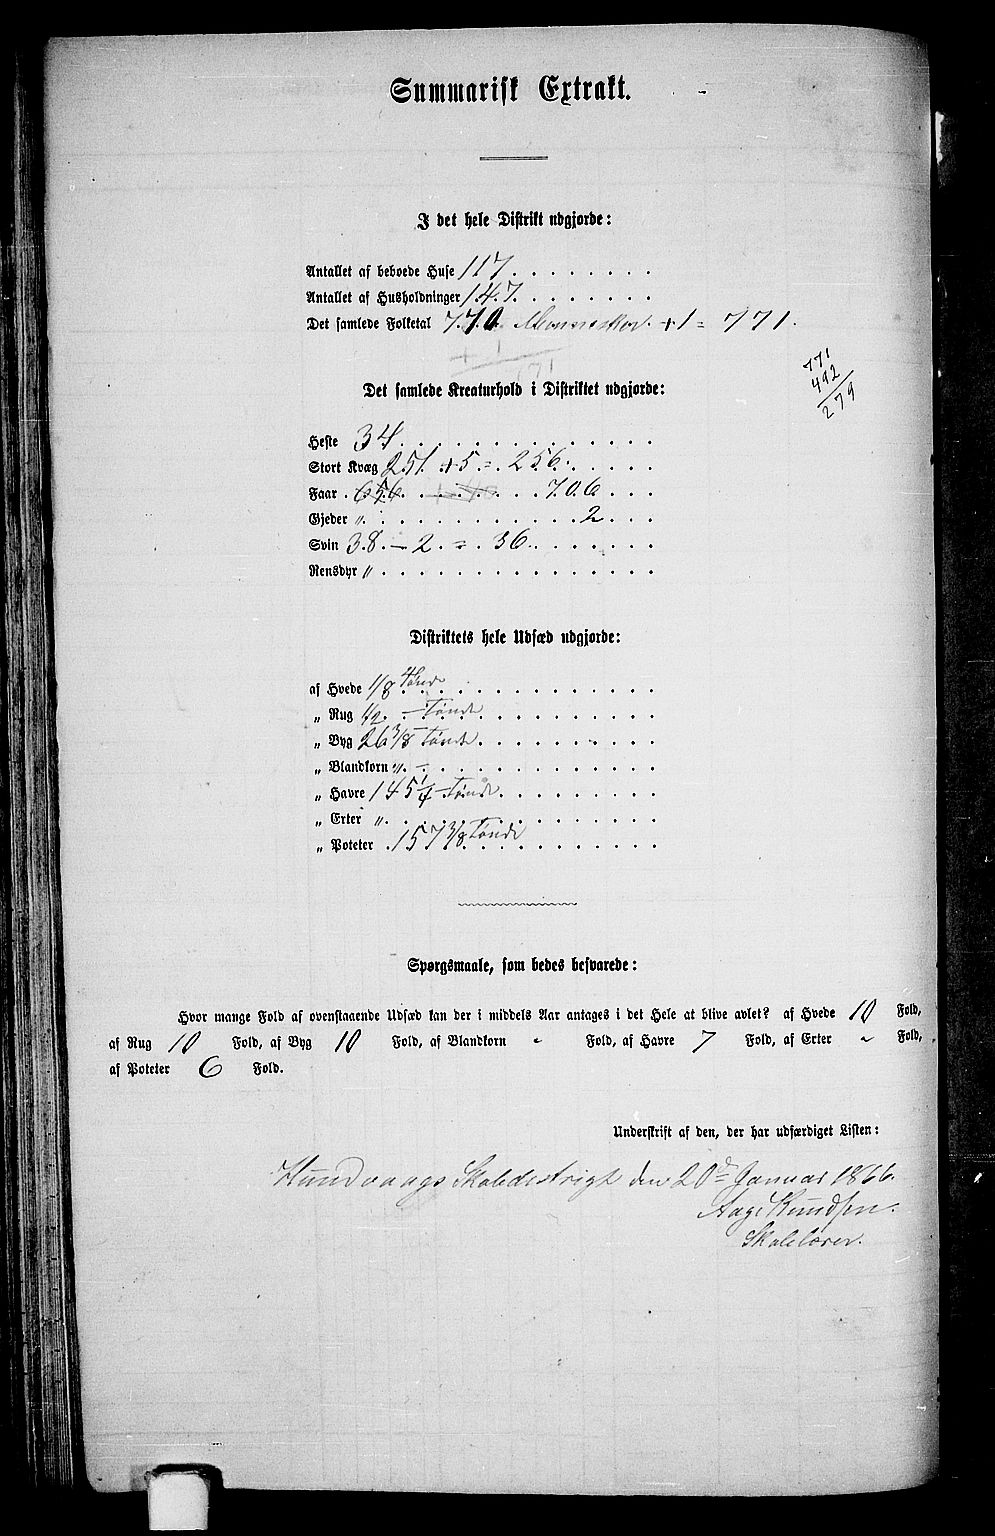 Summarisk Extrakt.
I det hele Distrikt udgjorde:
Antallet af beboede Huse 117
Antallet af Husholdninger 147
Det samlede Folketal 770 Mennesker + 1 = 771.
+ 1
771
771
492
279
Det samlede Kreaturhold i Distriktet udgjorde:
Heste 34
Stort Kvæg 251 + 5 = 256
Faar 656 706
Gjeder „ 2
Svin 38 — 2 = 36
Rensdyr „
Distriktets hele Udsæd udgjorde:
af Hvede 1/8 Tønde
„ Rug 1/2 — Tønde
„ Byg 26 3/8 Tønde
„ Blandkorn „ —
„ Havre 145 1/4 — Tønde
„ Erter „
„ Poteter 157 3/8 Tønde
Spørgsmaale, som bedes besvarede:
Hvor mange Fold af ovenstaaende Udsæd kan der i middels Aar antages i det Hele at blive avlet? af Hvede 10 Fold,
af Rug 10 Fold, af Byg 10 Fold, af Blandkorn „ Fold, af Havre 7 Fold, af Erter „ Fold,
af Poteter 6 Fold.
Underskrift af den, der har udfærdiget Listen:
Hundvaags Skoledistrigt den 20de Januar 1866.
Aage Knudsen.
Skolelærer.